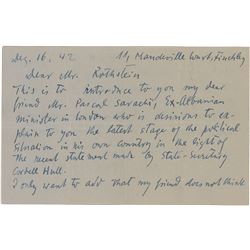 Dez. 16, 42
Mandeville Court, Finchley
Dear Mr. Rothstein
This is to introduce to you my dear
friend Mr. Pascal Saraçhi Ex-Albanian
minister in London who is desirous to ex-
plain to you the latest stage of the political
situation in his own country in the light of
the recent statement made by State-Secretary
Cordell Hull.
I only want to add that my friend does not think